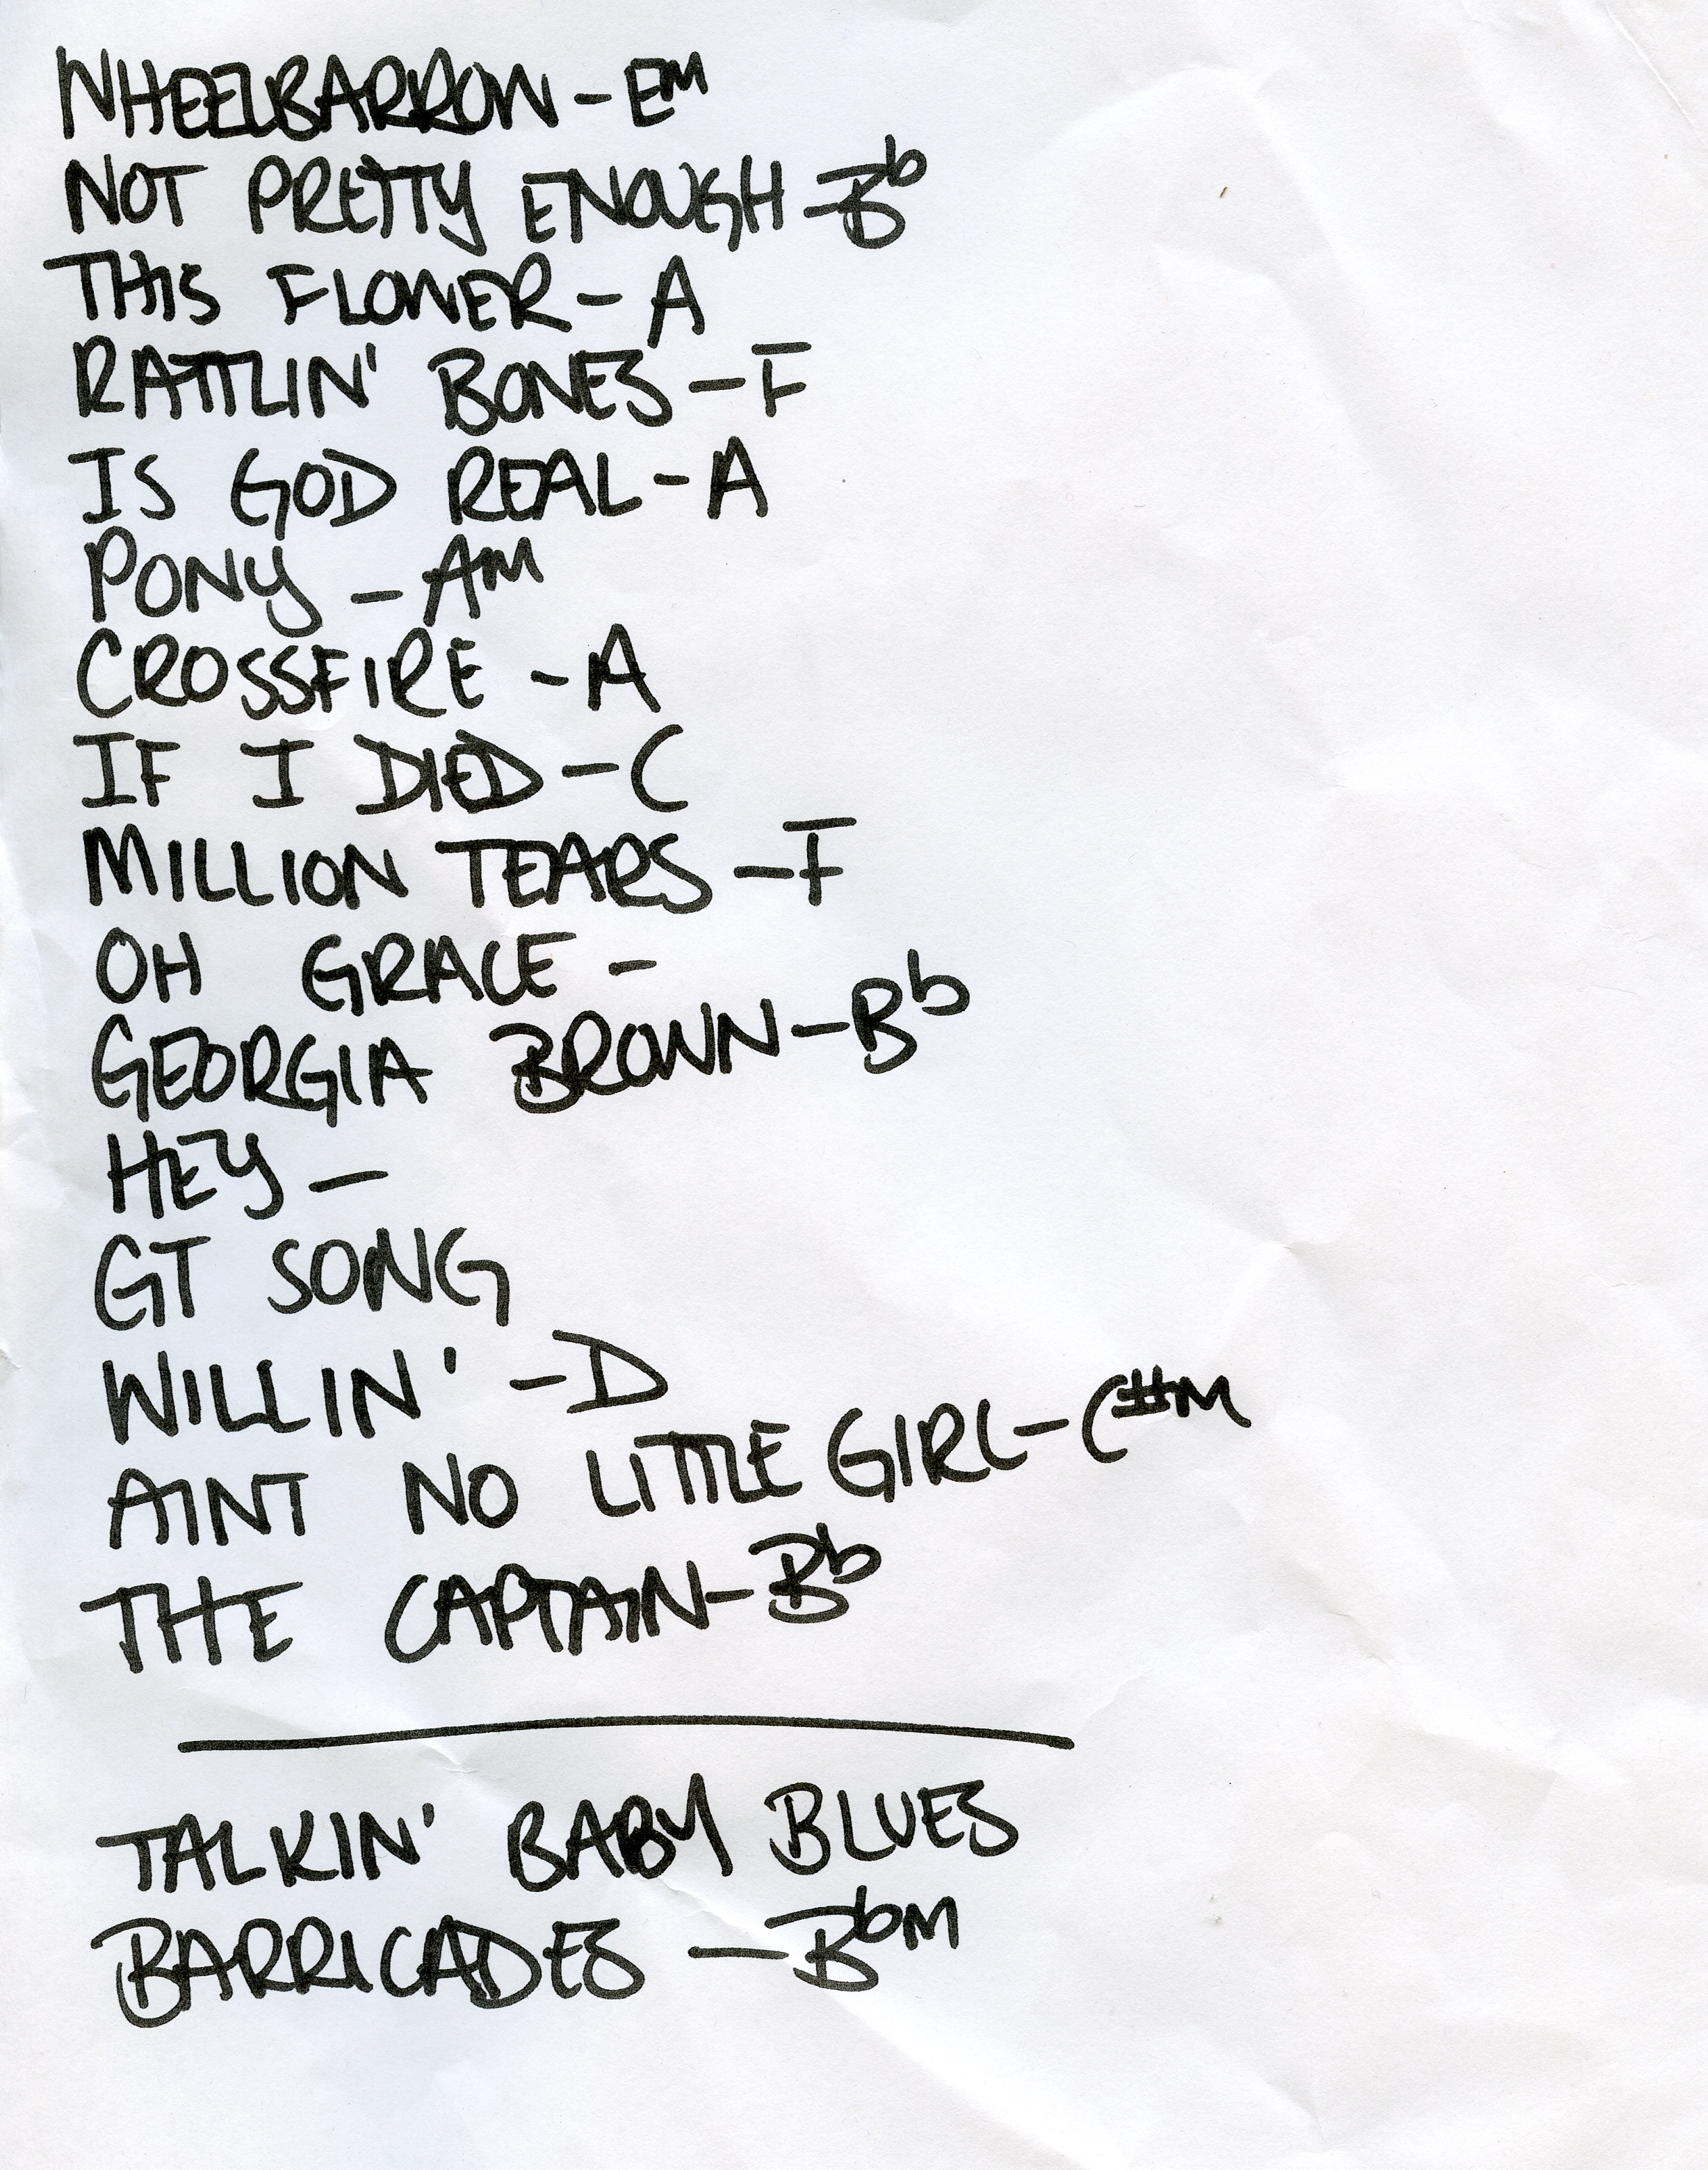 WHEELBARROW - EM
NOT PRETTY ENOUGH - Bb
THIS FLOWER - A
RATTLIN' BONES - F
IS GOD REAL - A
PONY - AM
CROSSFIRE - A
IF I DIED - C
MILLION TEARS - F
OH GRACE -
GEORGIA BROWN - Bb
HEY -
GT SONG
WILLIN' - D
AINT NO LITTLE GIRL - C#M
THE CAPTAIN - Bb
TALKIN' BABY BLUES
BARRICADES - BbM